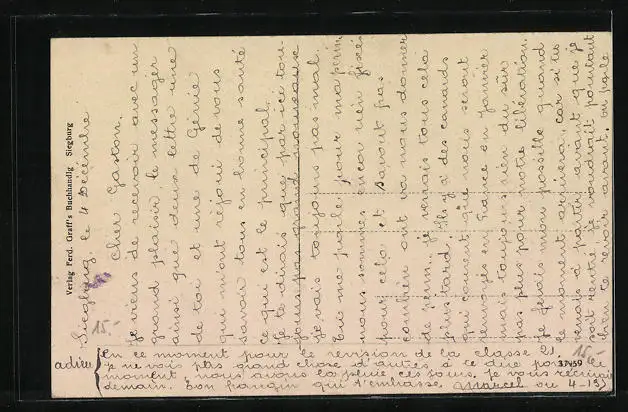 Verlag Ferd. Graff's Buchhandlg Siegburg
Siegburg, le 4 Décembre
Cher Gaston.
Je viens de recevoir avec un
grand plaisir, le messager
ainsi que deux lettre une
de toi et une de Génie
qui m'ont réjoui de vous
savoir tous en bonne santé
ce qui est le principal.
Je te dirais que par ici tou-
jours pas grand nouveaux
je vais toujours pas mal.
Tu me parle pour ma perm
nous sommes encor rien fixés
pour cela et savont pas
combien ont va nous donner
de perm. je verrais tous cela
plus tard. Il y a des canards
qui courent que nous seront
renvoyés en France en Janvier
mais toujours rien du sûr
pas plus pour notre libération.
Je ferais mon possible quand
le moment arrivera, car si tu
venais à partir avant que je
soit rentré je voudrait pourtant
bien te revoir avant. on parle
en ce moment pour la révision de la classe 21.
je ne vois plus grand chose d'autres à te dire pour le
moment, nous avons la pluie ces jours. Je vous récrirais
demain. Ton frangin qui t'embrasse Marcel
15.-
37459